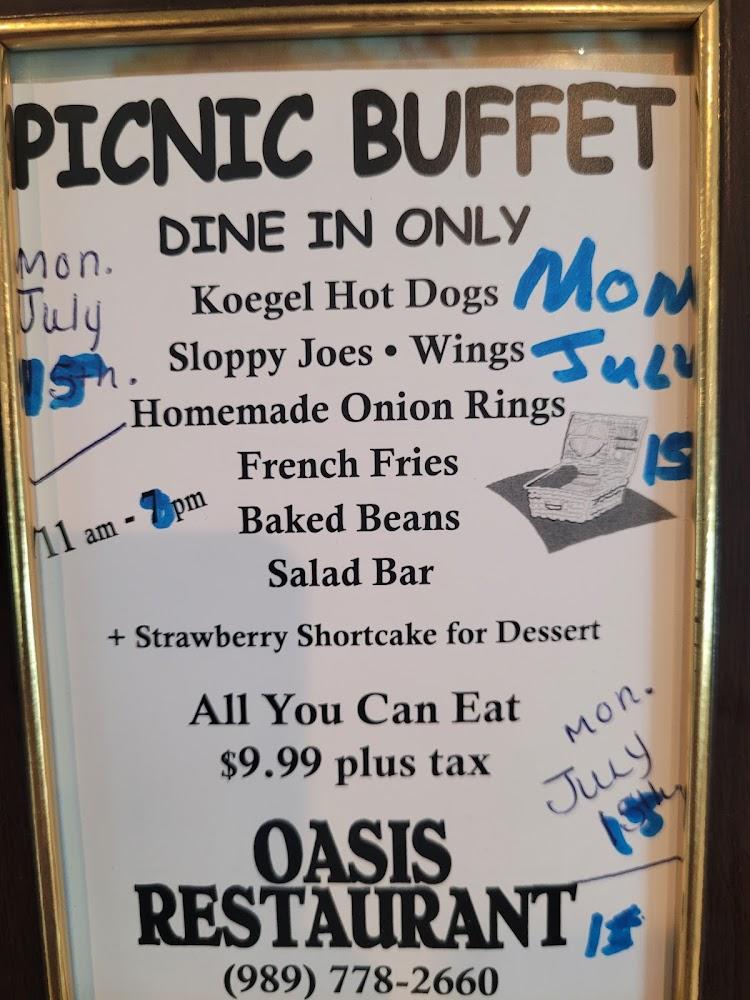 PICNIC BUFFET
DINE IN ONLY
Mon.
July
15th.
Koegel Hot Dogs
Mon
July
15
Sloppy Joes • Wings
Homemade Onion Rings
French Fries
11 am - pm
Baked Beans
Salad Bar
+ Strawberry Shortcake for Dessert
All You Can Eat
$9.99 plus tax
Mon.
July
15
OASIS
RESTAURANT
15
(989) 778-2660